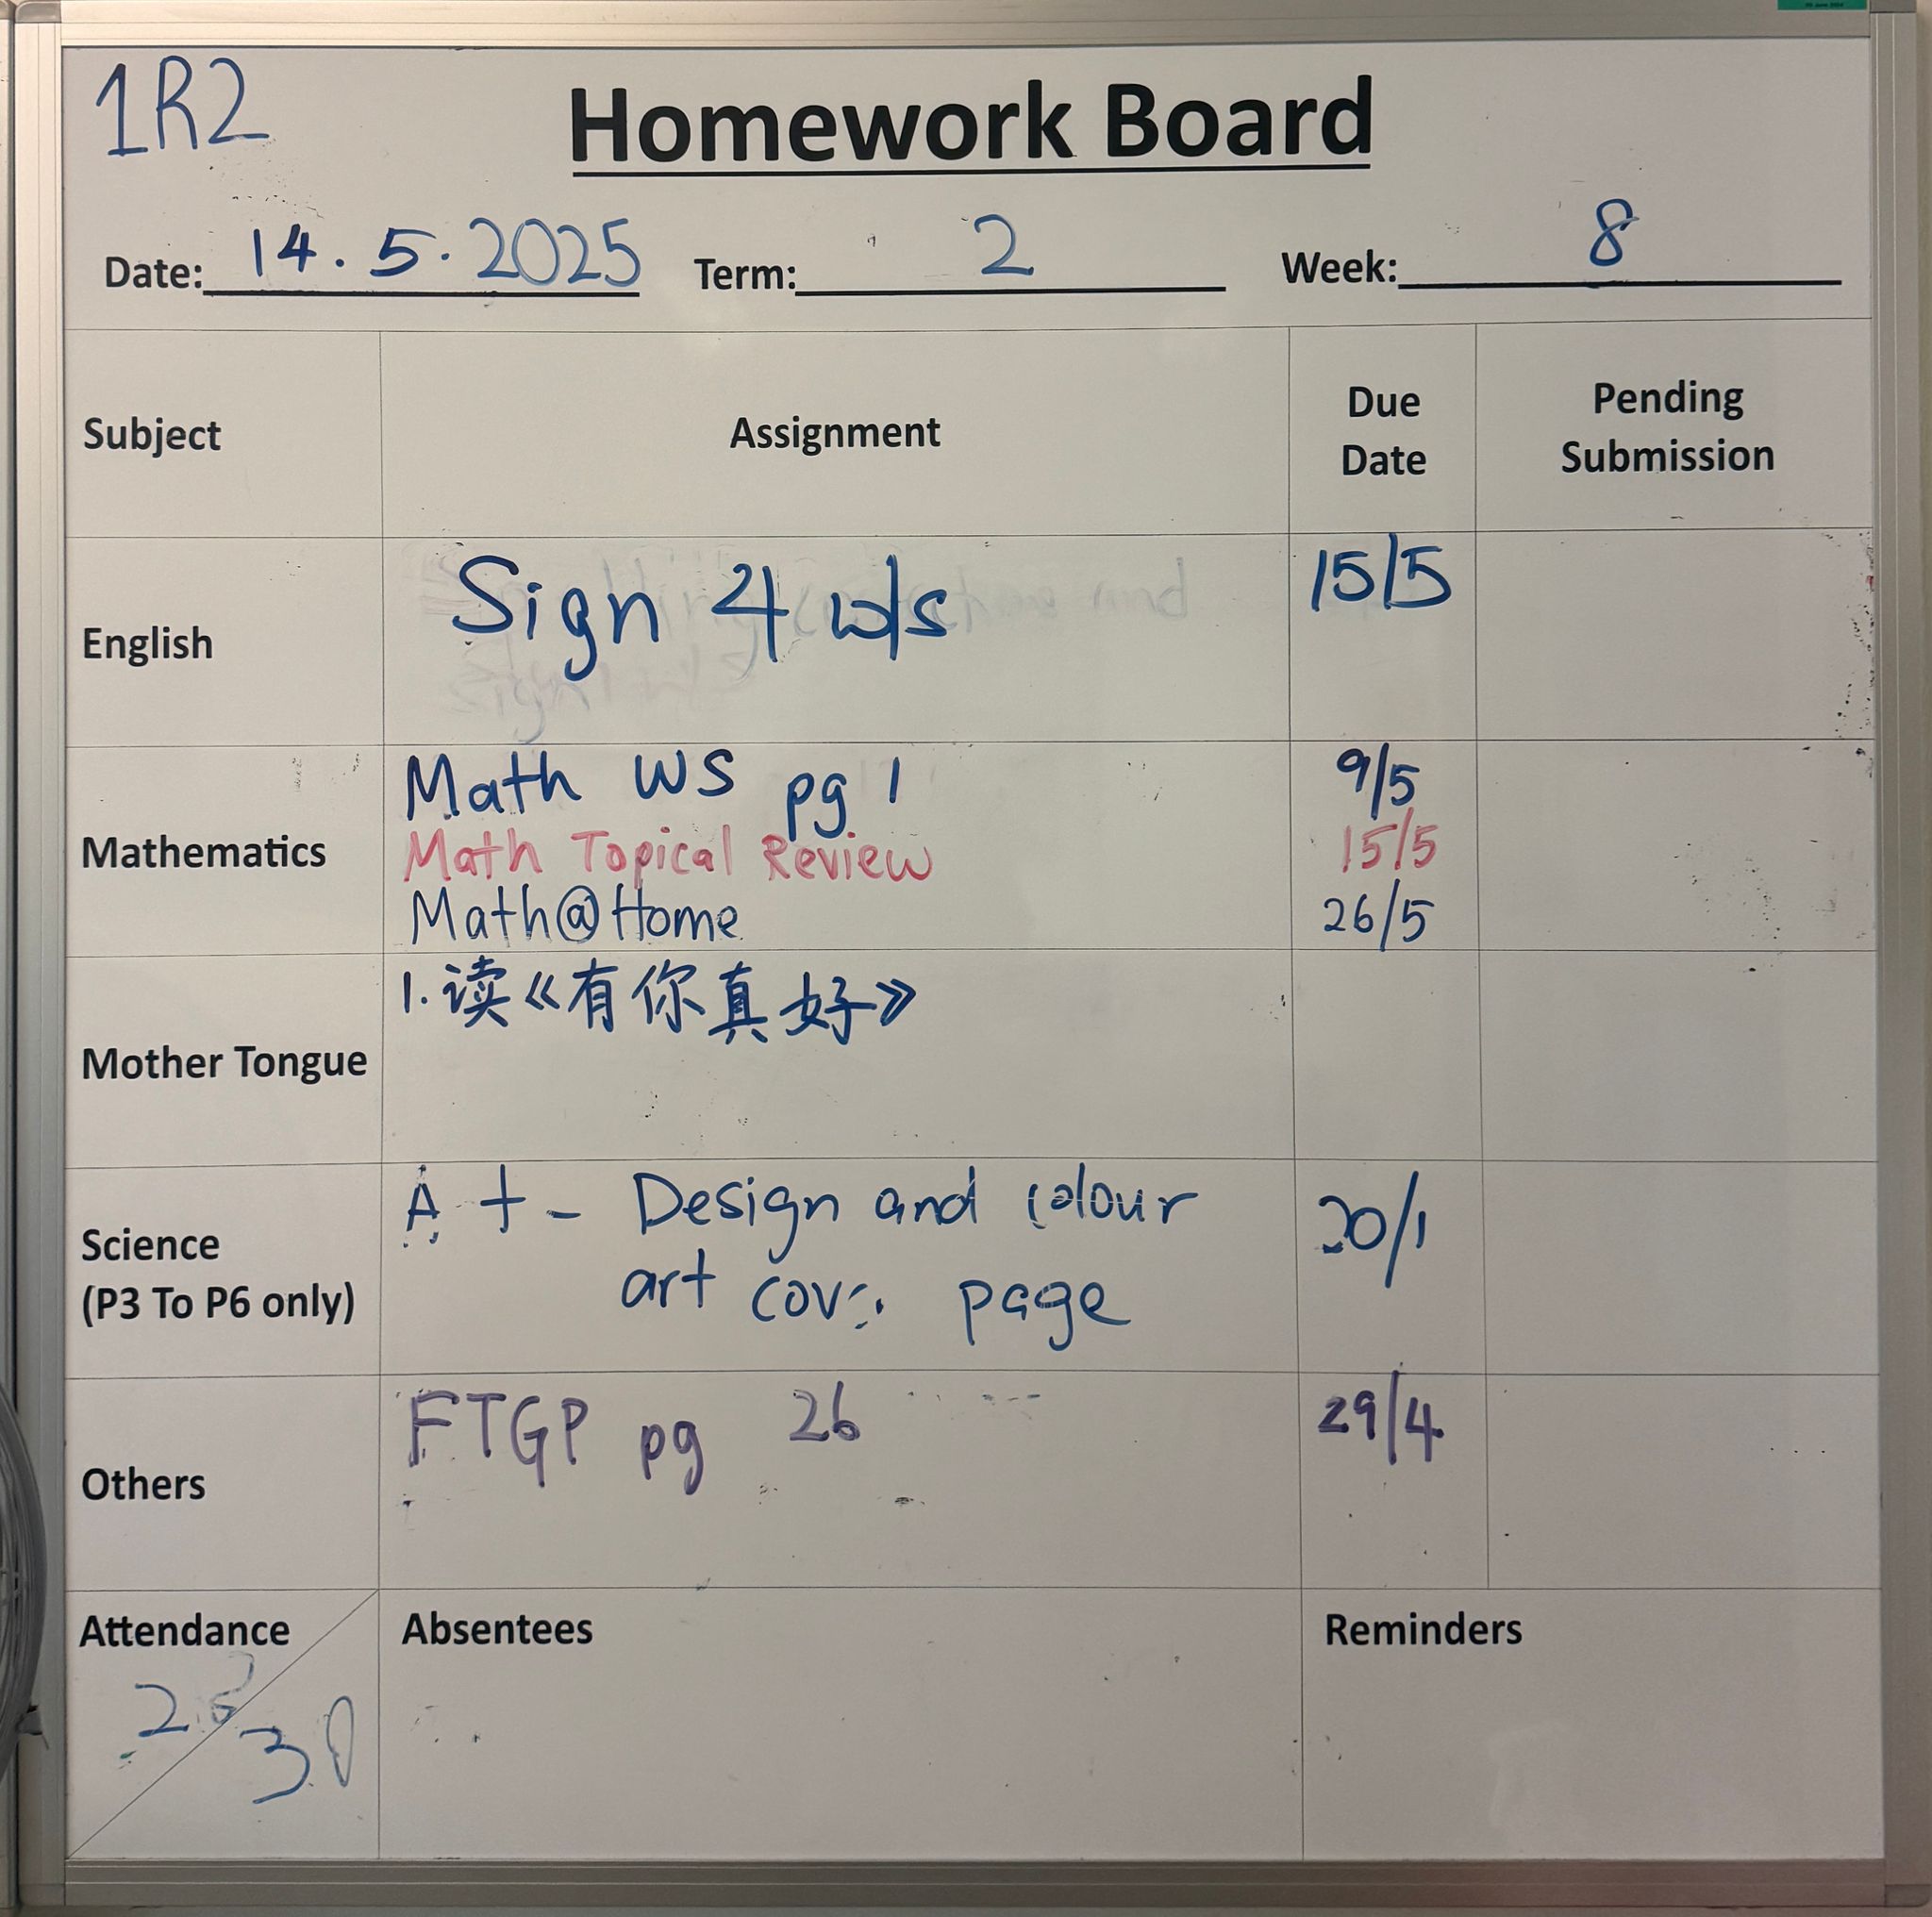 1R2
Homework Board
Date: 14.5.2025 Term: 2 Week: 8
Subject Assignment Due Date Pending Submission
English Sign 4 w/s 15/5
Mathematics
Math WS pg 1 9/5
Math Topical Review 15/5
Math@Home 26/5
Mother Tongue
1. 读《有你真好》
Science
(P3 To P6 only)
A t - Design and colour
art page
Others FTGP pg 26 29/4
Attendance Absentees Reminders
30